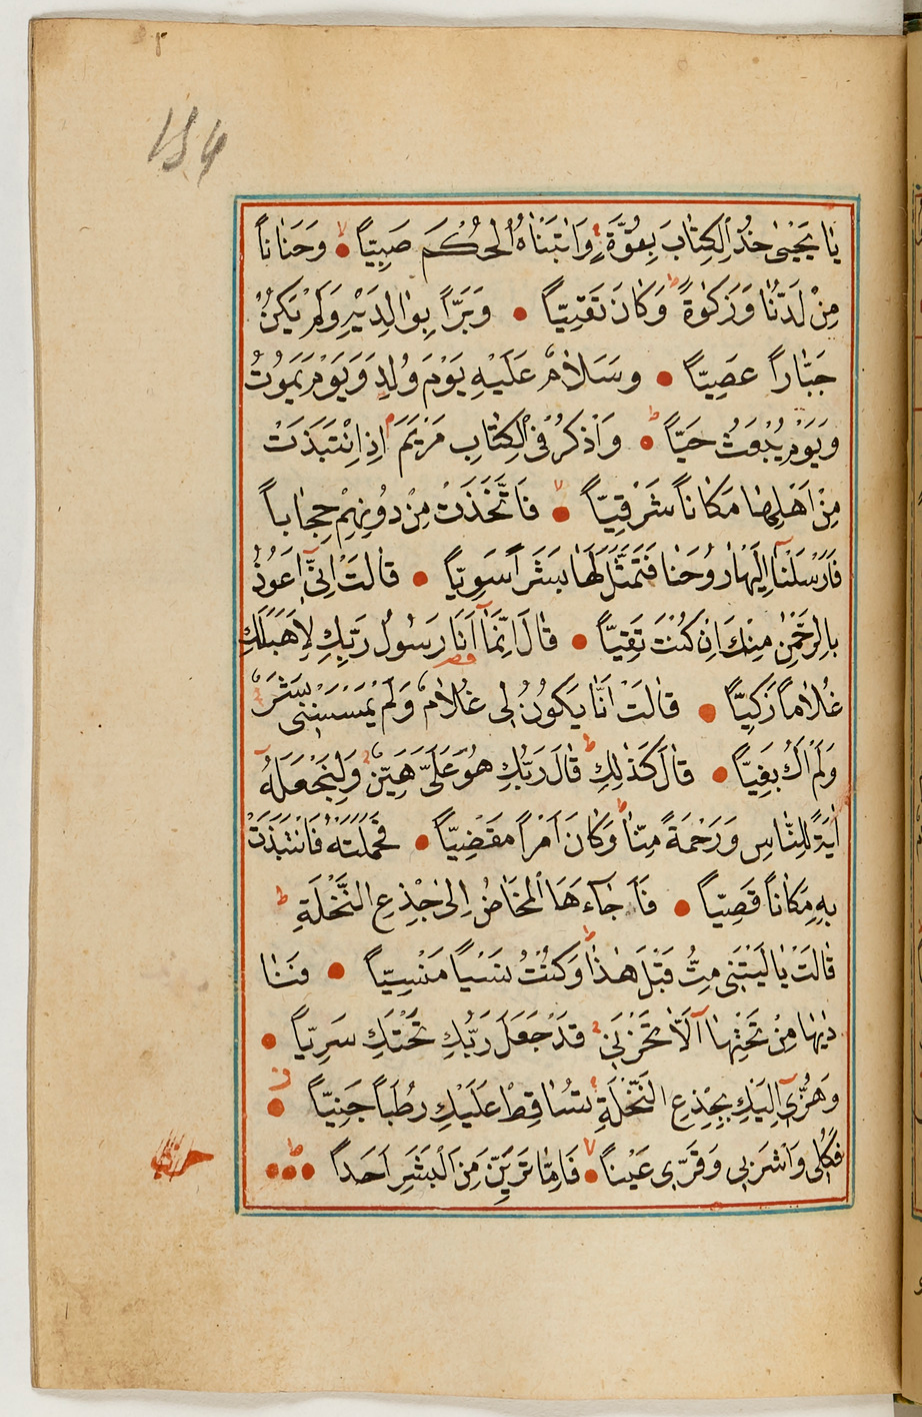 يَا يَحْيٰى خُذِ الْكِتَابَ بِقُوَّةٍ وَاٰتَيْنَاهُ الْحُكْمَ صَبِيّاً وَحَنَاناً
مِنْ لَدُنَّا وَزَكٰوةً وَكَانَ تَقِيّاً وَبَرّاً بِوَالِدَيْهِ وَلَمْ يَكُنْ
جَبَّاراً عَصِيّاً وَسَلَامٌ عَلَيْهِ يَوْمَ وُلِدَ وَيَوْمَ يَمُوتُ
وَيَوْمَ يُبْعَثُ حَيّاً وَاذْكُرْ فِي الْكِتَابِ مَرْيَمَ اِذِ انْتَبَذَتْ
مِنْ اَهْلِهَا مَكَاناً شَرْقِيّاً فَاتَّخَذَتْ مِنْ دُونِهِمْ حِجَاباً
فَاَرْسَلْنَا اِلَيْهَا رُوحَنَا فَتَمَثَّلَ لَهَا بَشَراً سَوِيّاً قَالَتْ اِنِّي اَعُوذُ
بِالرَّحْمٰنِ مِنْكَ اِنْ كُنْتَ تَقِيّاً قَالَ اِنَّمَا اَنَا رَسُولُ رَبِّكِ لِاَهَبَ لَكِ
غُلَاماً زَكِيّاً قَالَتْ اَنَّا يَكُونُ لِي غُلَامٌ وَلَمْ يَمْسَسْنِي بَشَرٌ
وَلَمْ اَكُ بَغِيّاً قَالَ كَذٰلِكِ قَالَ رَبُّكِ هُوَ عَلَيَّ هَيِّنٌ وَلِنَجْعَلَهُ
اٰيَةً لِلنَّاسِ وَرَحْمَةً مِنَّا وَكَانَ اَمْراً مَقْضِيّاً فَحَمَلَتْهُ فَانْتَبَذَتْ
بِهِ مَكَاناً قَصِيّاً فَاَجَاءَهَا الْمَخَاضُ اِلٰى جِذْعِ النَّخْلَةِ
قَالَتْ يَا لَيْتَنِي مِتُّ قَبْلَ هٰذَا وَكُنْتُ نَسْياً مَنْسِيّاً فَنَا
دٰيهَا مِنْ تَحْتِهَا اَلَّا تَحْزَنِي قَدْ جَعَلَ رَبُّكِ تَحْتَكِ سَرِيّاً
وَهُزِّي اِلَيْكِ بِجِذْعِ النَّخْلَةِ تُسَاقِطْ عَلَيْكِ رُطَباً جَنِيّاً
فَكُلِي وَاشْرَبِي وَقَرِّي عَيْناً فَاِمَّا تَرَيِنَّ مِنَ الْبَشَرِ اَحَداً